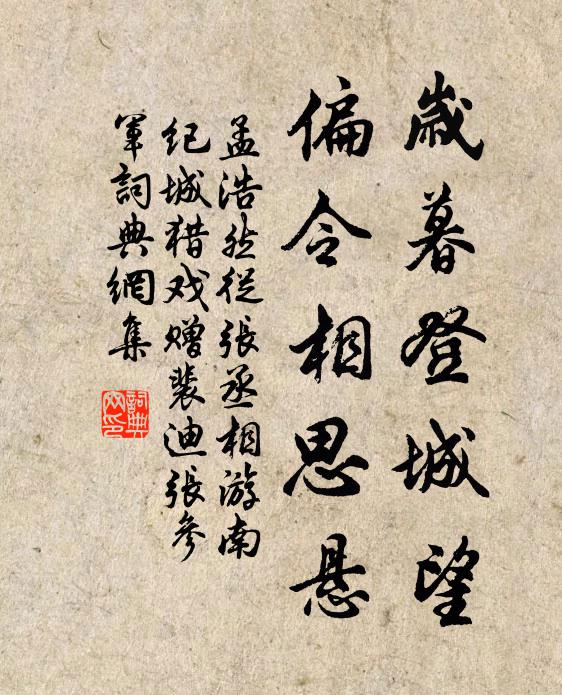 歲暮登城望
偏令相思悬
孟浩然從張丞相游南
纪城猎戏赠裴迪張參
軍詞典網集
詞典
网印